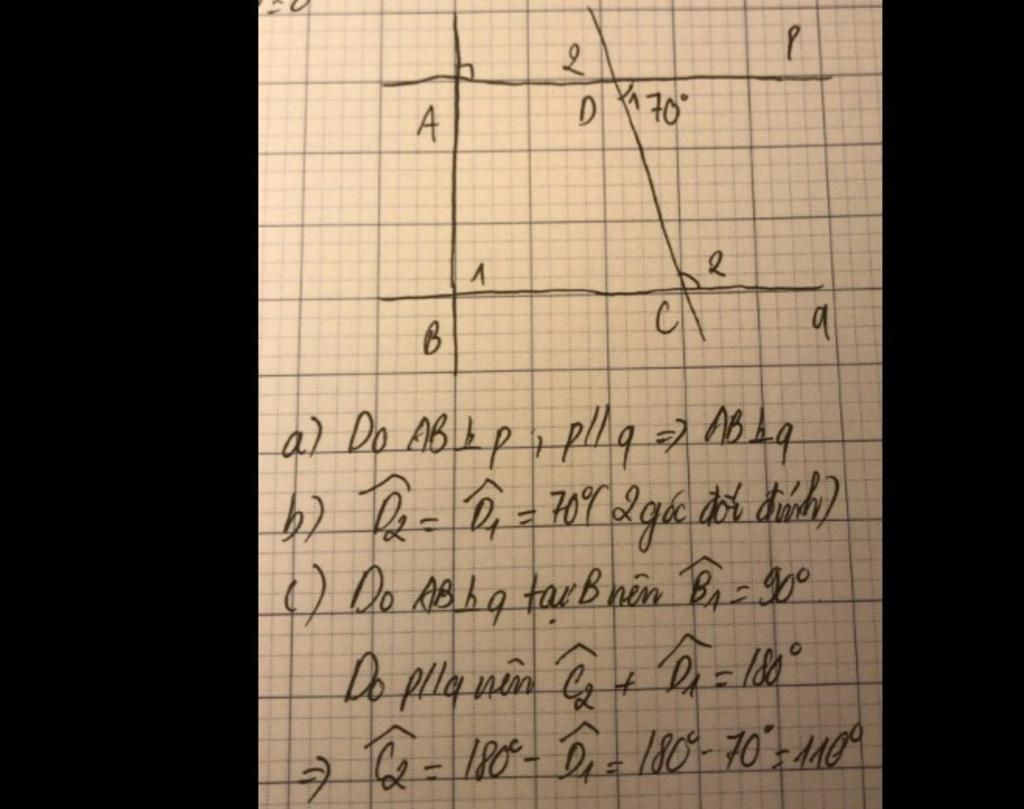 2 P
A D 1 70°
1 2
B C q
a) Do AB ⊥ p, p // q => AB ⊥ q
b) D̂₂ = D̂₁ = 70° (2 góc đối đỉnh)
c) Do AB ⊥ q tại B nên B̂₁ = 90°
Do p // q nên Ĉ₂ + D̂₁ = 180°
=> Ĉ₂ = 180° - D̂₁ = 180° - 70° = 110°